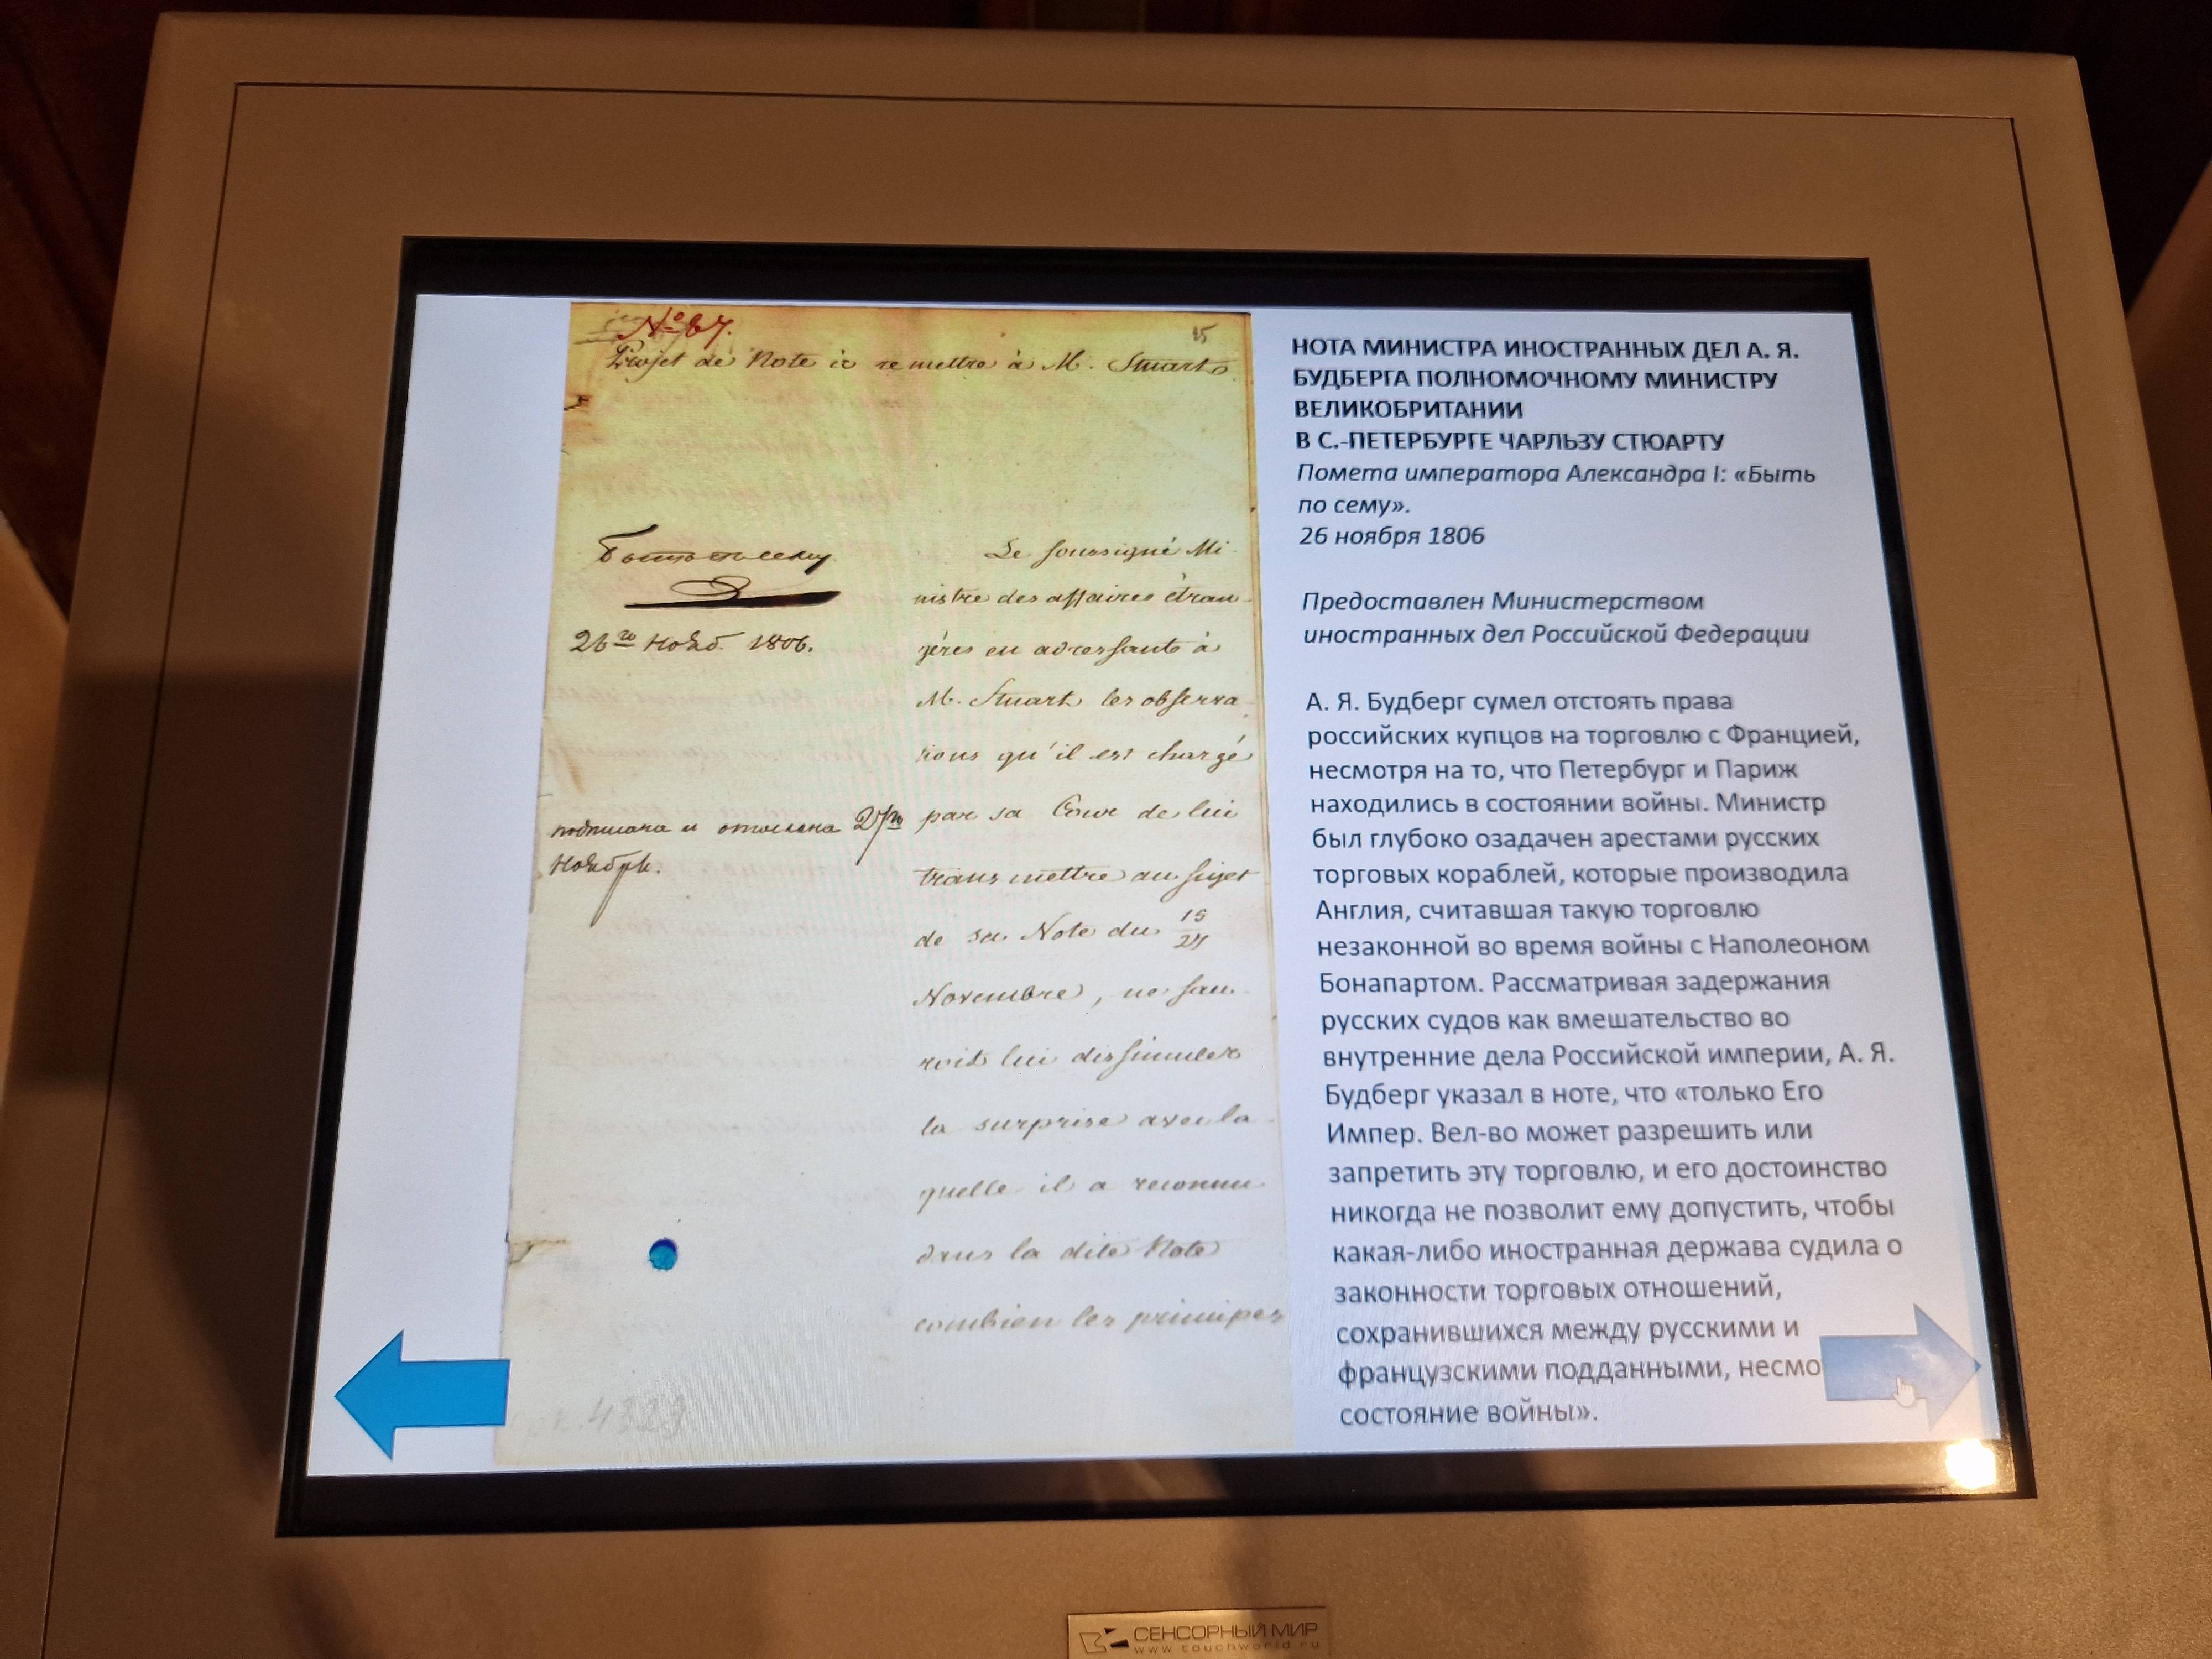 № 67.
25
Projet de Note à remettre à M. Stuart.
Быть по сему
26го Нояб. 1806.
подписана и отослана 27го
Ноября.
Le soussigné Mi-
nistre des affaires étran-
gères en adressant à
M. Stuart les observa-
tions qu'il est chargé
par sa Cour de lui
transmettre au sujet
de sa Note du 15/27
Novembre, ne sau-
roit lui dissimuler
la surprise avec la-
quelle il a reconnu
dans la dite Note
combien les principes
4329
НОТА МИНИСТРА ИНОСТРАННЫХ ДЕЛ А. Я.
БУДБЕРГА ПОЛНОМОЧНОМУ МИНИСТРУ
ВЕЛИКОБРИТАНИИ
В С.-ПЕТЕРБУРГЕ ЧАРЛЬЗУ СТЮАРТУ
Помета императора Александра I: «Быть
по сему».
26 ноября 1806
Предоставлен Министерством
иностранных дел Российской Федерации
А. Я. Будберг сумел отстоять права
российских купцов на торговлю с Францией,
несмотря на то, что Петербург и Париж
находились в состоянии войны. Министр
был глубоко озадачен арестами русских
торговых кораблей, которые производила
Англия, считавшая такую торговлю
незаконной во время войны с Наполеоном
Бонапартом. Рассматривая задержания
русских судов как вмешательство во
внутренние дела Российской империи, А. Я.
Будберг указал в ноте, что «только Его
Импер. Вел-во может разрешить или
запретить эту торговлю, и его достоинство
никогда не позволит ему допустить, чтобы
какая-либо иностранная держава судила о
законности торговых отношений,
сохранившихся между русскими и
французскими подданными, несмо
состояние войны».
СЕНСОРНЫЙ МИР
www.touchworld.ru